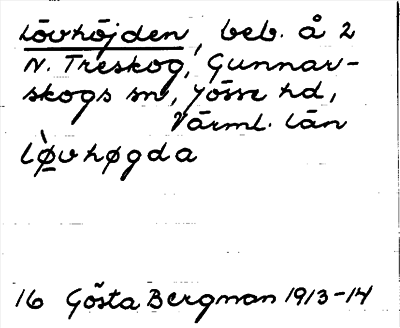 Lövhöjden, beb. å 2
N. Treskog, Gunnar-
skogs sn, Jösse hd,
Värml. län
lø̱̀vhøgda
16 Gösta Bergman 1913-14